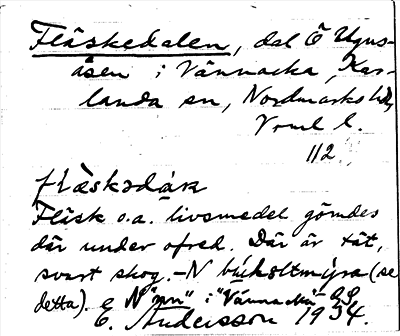 Fläskedalen, dal Ö Ugns-
åsen i Vännacka, Kar-
landa sn, Nordmarks hd,
Vrml l.
112.
flæskədák
Fläsk o.a. livsmedel gömdes
där under ofred. Där är tät,
svart skog. - N búkoltmýra (se
detta). e N "mn" i "Vännacka" G.S.
E. Andersson 1934.